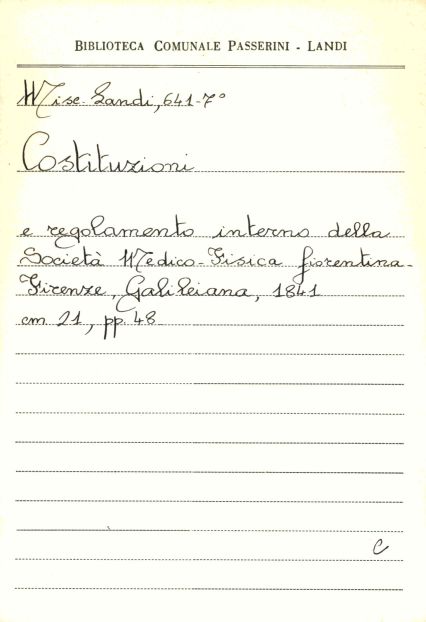 BIBLIOTECA COMUNALE PASSERINI - LANDI
Misc. Landi, 641-7°
Costituzioni
e regolamento interno della
Società Medico-Fisica fiorentina-
Firenze, Galileiana, 1841
cm 21, pp. 48
C